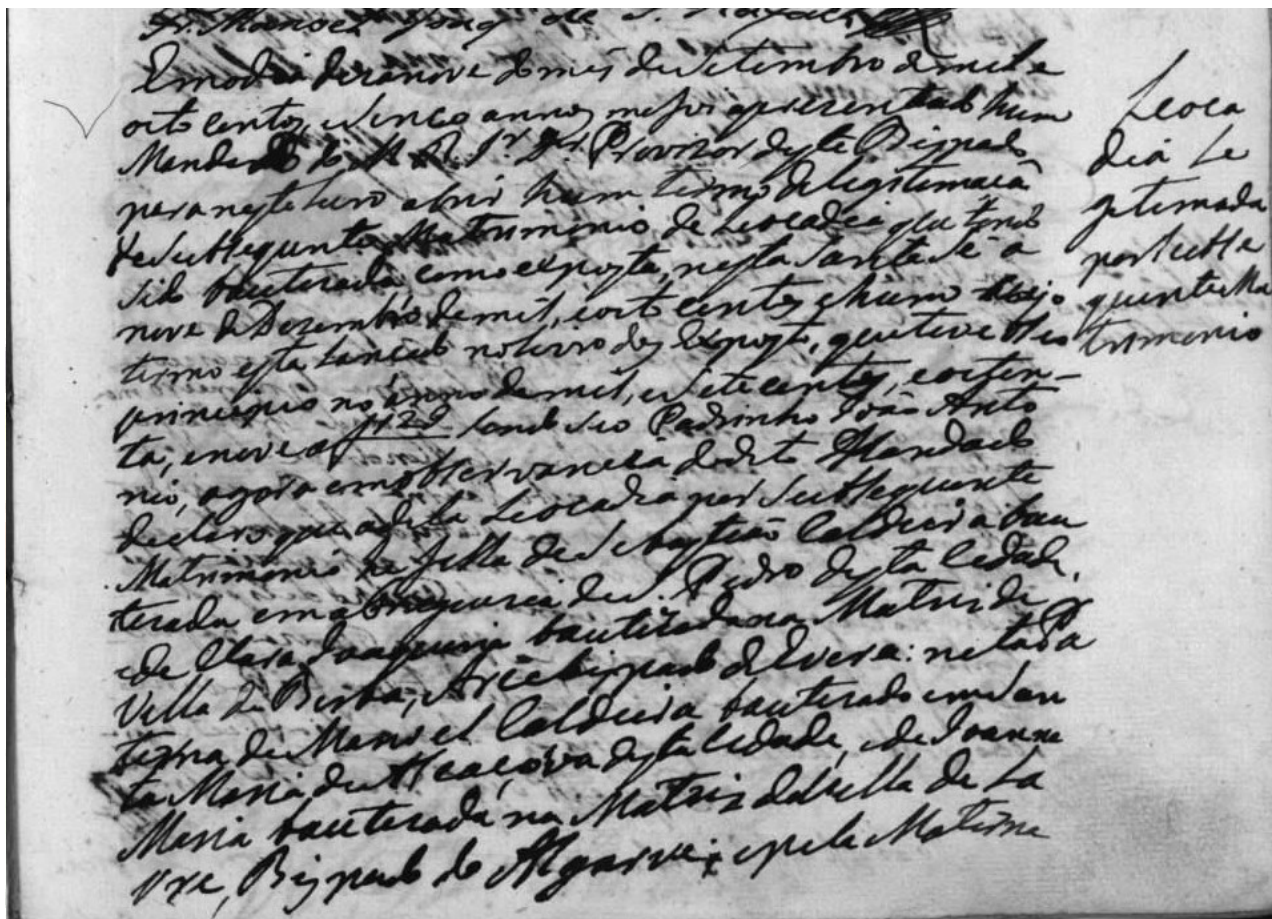 Fr. Manoel de S. Rafael
Em o dia dezanove do mes de Setembro de mil e
oito centos, e sinco annos me foi aprezentado hum
Mandado do M. R. Sr. Dr. Provizor deste Bispado
para neste livro abrir hum termo de legitimacã
de Subsequente Matrimonio de Leocadia que tendo
sido bautezada como exposta, nesta Santa Sé a
nove de Dezembro de mil, e oito centos e hum cujo
termo esta lançado no livro dos Expostos, que teve o seo
principio no anno de mil, e sete centos, e oiten-
ta, e nove a f 128 sendo seo Padrinho João Anto
nio, agora em observancia do dito Mandado
declaro que a dita Leocadia por Subsequente
Matrimonio he filha de Sebastião Caldeira bau
tezado em a freguezia de S. Pedro desta Cidade,
e de Clara Joaquina bautizada na Matris de
Villa de Borba, Arcebispado de Evora: neta Pa
terna de Manoel Caldeira bautezado em San
ta Maria de Alcaçova desta Cidade, e de Joanna
Maria bautezada na Matriz da Villa de La
Bispado do Algarve; e pela Materna
Leoca
dia Le
getemada
por subse
quente Ma
trimonio